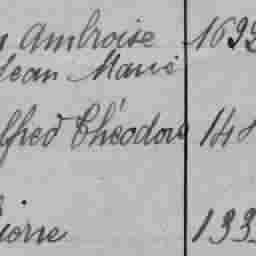 Ambroise 169
Jean Marie
lfred Théodore 14
133